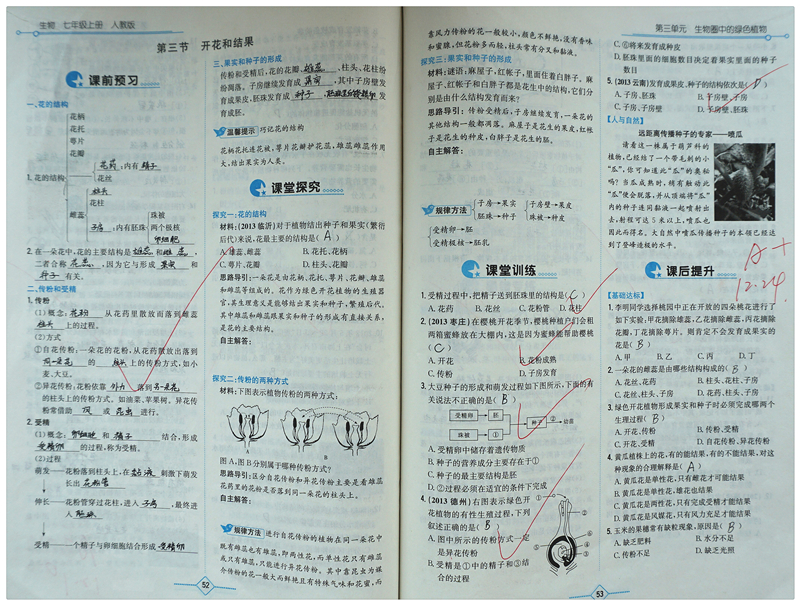 生物 七年级上册 人教版
第三节 开花和结果
课前预习
一、花的结构
花柄
花托
萼片
花瓣
花药:内有 精子
花丝
1.花的结构
柱头
花柱
雌蕊
子房:内有胚珠
珠被
两个极核
卵细胞
2.在一朵花中,花的主要结构是 雄蕊 和 雌蕊 ,
二者合称 花蕊 ,因为它与形成 果实 和
种子 有关。
二、传粉和受精
1.传粉
(1)概念: 花粉 从花药里散放而落到雌蕊
柱头 上的过程。
(2)方式
①自花传粉:一朵花的花粉,从花药散放出落到
同一朵花 的 柱头 上的传粉方式,如小
麦、大豆。
②异花传粉:花粉依靠 外力 落到另一朵花
的柱头上的传粉方式。如油菜、苹果树。异花传
粉常借助 风 或 昆虫 进行。
2.受精
(1)概念: 卵细胞 和 精子 结合,形成
受精卵 的过程,称为受精。
(2)过程
萌发——花粉落到柱头上,在 黏液 刺激下萌发
长出 花粉管
伸长——花粉管穿过花柱,进入 子房 ,最终进
入 胚珠
受精——一个精子与卵细胞结合形成 受精卵
三、果实和种子的形成
传粉和受精后,花的花瓣、 雄蕊 、柱头、花柱纷
纷凋落。子房继续发育成 果实 ,其中子房壁发
育成果皮,胚珠发育成 种子 ,胚珠里的受精卵发
育成胚。
温馨提示 巧记花的结构
花柄花托连花被,萼片花瓣护花蕊,雄蕊雌蕊作用
大,结出果实为人类。
课堂探究
探究一:花的结构
材料:(2013临沂)对于植物结出种子和果实(繁衍
后代)来说,花最主要的结构是( A )
A.雄蕊、雌蕊 B.花托、花柄
C.萼片、花瓣 D.柱头、花瓣
思路导引:一朵花是由花柄、花托、萼片、花瓣、雄蕊
和雌蕊等组成的。花作为绿色开花植物的生殖器
官,其生理意义是能够结出果实和种子,繁殖后代。
其中雄蕊和雌蕊跟果实和种子的形成有直接关系,
是花的主要结构。
自主解答:
探究二:传粉的两种方式
材料:下图表示植物传粉的两种方式:
A
B
图A、图B分别属于哪种传粉方式?
思路导引:区分自花传粉和异花传粉主要是看雄蕊
花药里的花粉是否落到同一朵花的柱头上。
自主解答:
规律方法 进行自花传粉的植物在同一朵花中
既有雄蕊也有雌蕊,即两性花,而单性花只有雌蕊
或只有雄蕊,只能进行异花传粉。其中靠昆虫为媒
介传粉的花一般大而鲜艳且有特殊气味和花蜜,而
52
第三单元 生物圈中的绿色植物
靠风力传粉的花一般较小,颜色不鲜艳,没有香味
和蜜腺,但花粉多而轻,柱头常有分叉和黏液。
探究三:果实和种子的形成
材料:谜语:麻屋子,红帐子,里面住着白胖子。麻
屋子、红帐子和白胖子都是花生中的结构,它们分
别是由什么结构发育而来?
思路导引:传粉受精后,子房继续发育,一朵花的
其他结构一般都凋落。麻屋子是花生的果皮,红帐
子是花生的种皮,白胖子是花生的胚。
自主解答:
规律方法
子房→果实
胚珠→种子
子房壁→果皮
珠被→种皮
受精卵→胚
受精极核→胚乳
课堂训练
1.受精过程中,把精子送到胚珠里的结构是( C )
A.花粉 B.花药 C.花粉管 D.花柱
2.(2013枣庄)在樱桃开花季节,樱桃种植户们会租
两箱蜜蜂放在大棚内,这是因为蜜蜂能帮助樱桃
( C )
A.开花 B.花粉成熟
C.传粉 D.子房发育
3.大豆种子的形成和萌发过程如下图所示,下面的有
关说法不正确的是( B )
受精卵 胚
珠被 ①
种子 ② 幼苗
A.受精卵中储存着遗传物质
B.种子的营养成分主要存在于①
C.种子的最主要结构是胚
D.②过程必须在适宜的条件下完成
4.(2013德州)右图表示绿色开
花植物的有性生殖过程,下列
叙述正确的是( B )
A.图中所示的传粉方式一定
是异花传粉
B.受精是①中的精子和③结
合的过程
C.⑥将来发育成种皮
D.胚珠里面的细胞数目决定着果实里面的种子
数目
5.(2013云南)发育成果皮、种子的结构依次是( D )
A.子房、胚珠 B.子房壁、子房
C.子房、子房壁 D.子房壁、胚珠
【人与自然】
远距离传播种子的专家——喷瓜
请看这一株属于葫芦科的
植物,已经结了一个带毛刺的小
“瓜”,你可知道此“瓜”的奥秘
吗?当瓜成熟时,稍有触动此
“瓜”便会脱落,并从顶端将“瓜”
内的种子连同黏液一起喷射出
去,射程可达5米以上,喷瓜也
因此而得名。大自然中喷瓜传播种子的本领已经达
到了登峰造极的水平。
A+
12.24
课后提升
【基础达标】
1.李明同学选择桃园中正在开放的四朵桃花进行了
如下实验,甲花摘除雄蕊,乙花摘除雌蕊,丙花摘除
花瓣,丁花摘除萼片。则肯定不会发育成果实的
花是( B )
A.甲 B.乙 C.丙 D.丁
2.一朵花的雌蕊是由哪些结构构成的( B )
A.花丝、花药 B.柱头、花柱、子房
C.花丝、柱头、子房 D.花药、柱头、子房
3.绿色开花植物形成果实和种子时必须完成哪两个
生理过程( B )
A.开花、传粉 B.传粉、受精
C.开花、受精 D.自花传粉、异花传粉
4.黄瓜植株上的花,有的能结果,有的不能结果,对这
种现象的合理解释是( A )
A.黄瓜花是单性花,只有雌花才可能结果
B.黄瓜花是单性花,雄花也结果
C.黄瓜花是两性花,只有完成受精才能结果
D.黄瓜花是风媒花,只有风力充足才能结果
5.玉米的果穗常有缺粒现象,原因是( B )
A.缺乏肥料 B.水分不足
C.传粉不足 D.缺乏光照
53